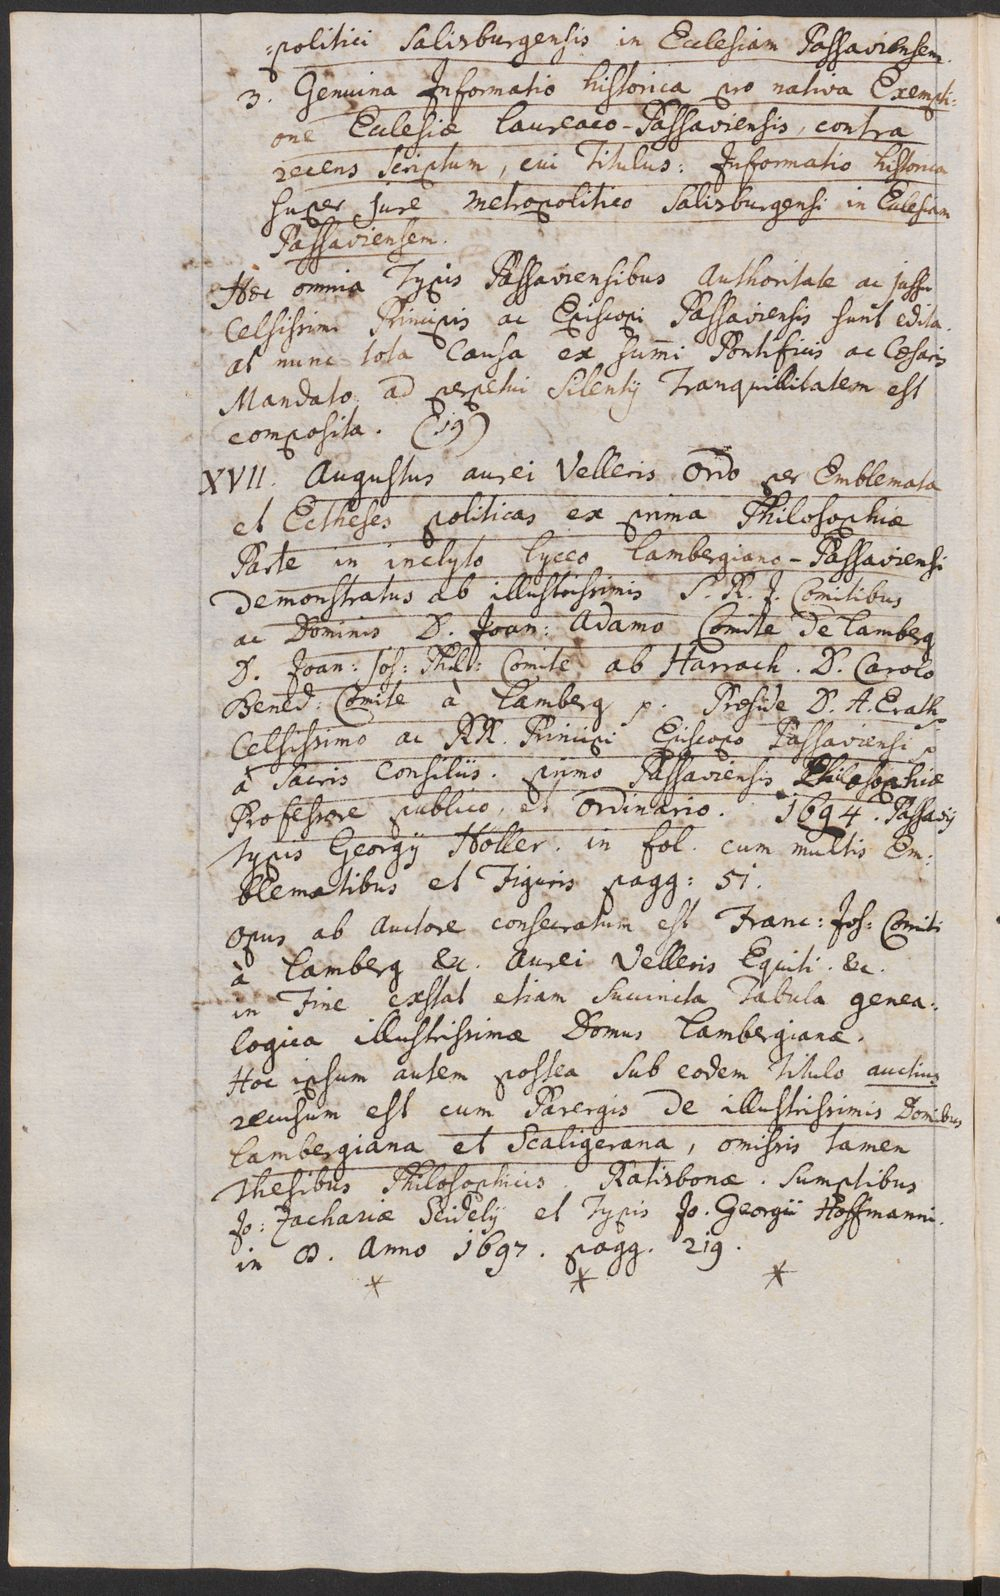 =politici Salisburgensis in Ecclesiam Passaviensem.
3. Genuina Informatio historica pro nativa Exempti=
one Ecclesiæ Laureaco-Passaviensis, contra
recens scriptum, cui Titulus: Informatio historica
super jure metropolitico Salisburgensi in Ecclesiam
Passaviensem.
Hæc omnia Typis Passaviensibus Authoritate ac jussu
Celsissimi Principis ac Episcopi Passaviensis sunt edita.
at nunc tota Causa ex summi Pontificis ac Cæsaris
Mandato ad perpetui Silentij Tranquillitatem est
composita. (19)
XVII. Augustus aurei Velleris Ordo per Emblemata
et Ectheses politicas ex prima Philosophiæ
Parte in inclyto Lyceo Lambergiano-Passaviensi
demonstratus ab illustrissimis S. R. J. Comitibus
ac Dominis D. Joan: Adamo Comite de Lamberg
D. Joan: Jos: Phil: Comite ab Harrach. D. Carolo
Bened: Comite à Lamberg p. Præside D. A. Erath
Celsissimo ac RR. Principi Episcopo Passaviensi p
à Sacris Consiliis. primo Passaviensis Philosophiæ
Professore publico, et ordinario. 1694. Passavij
Typis Georgij Höller. in fol. cum multis Em:
blematibus et Figuris pagg: 51.
Opus ab Auctore consecratum est Franc: Jos: Comiti
à Lamberg &c. Aurei Velleris Equiti. &c.
in Fine exstat etiam succincta Tabula genea:
logica illustrissimæ Domus Lambergianæ.
Hoc ipsum autem postea sub eodem Titulo auctius
recusum est cum Parergis de illustrissimis Domibus
Lambergiana et Scaligerana, omissis tamen
Thesibus Philosophicis. Ratisbonæ. Sumptibus
Jo: Zachariæ Seidelij et Typis Jo. Georgii Hoffmanni.
in 8. Anno 1697. pagg. 219.
* * *